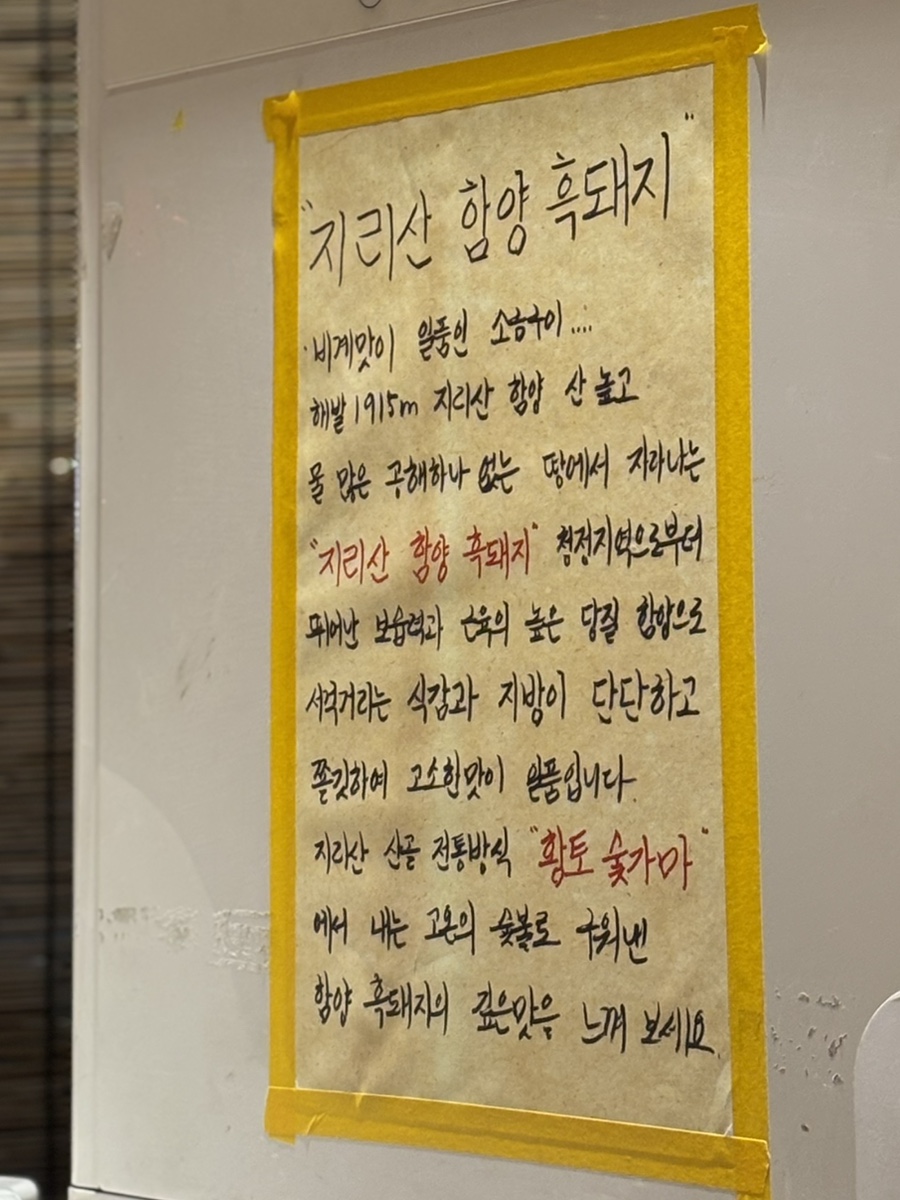 "지리산 함양 흑돼지"
·비계맛이 일품인 소금구이....
해발 1915m 지리산 함양 산 높고
물 많은 공해하나 없는 땅에서 자라나는
"지리산 함양 흑돼지" 청정지역으로부터
뛰어난 보습력과 근육의 높은 당질 함암으로
서걱거리는 식감과 지방이 단단하고
쫄깃하여 고소한맛이 일품입니다.
지리산 산골 전통방식 "황토 숯가마"
에서 내는 고온의 숯불로 구워낸
함양 흑돼지의 깊은맛을 느껴 보세요.